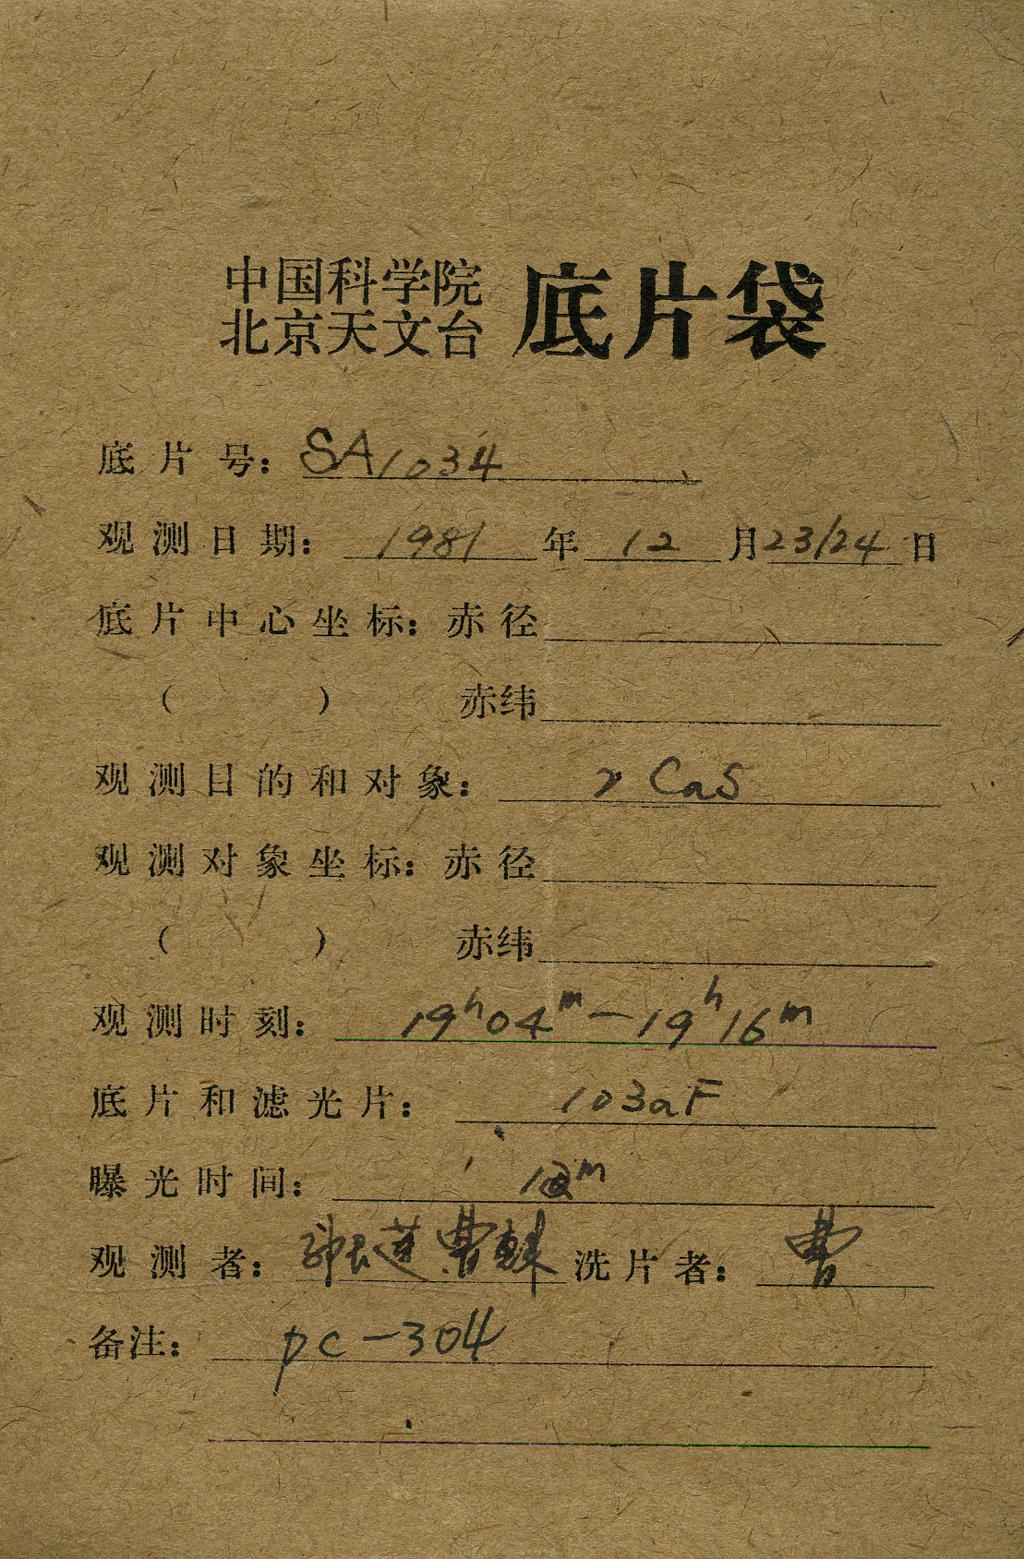 中国科学院
北京天文台 底片袋
底片号: SA1034
观测日期: 1981 年 12 月 23/24 日
底片中心坐标: 赤径
( ) 赤纬
观测目的和对象: γ CaS
观测对象坐标: 赤径
( ) 赤纬
观测时刻: 19h04m-19h16m
底片和滤光片: 103aF
曝光时间: 12m
观测者: 曹 洗片者: 曹
备注: pc-304